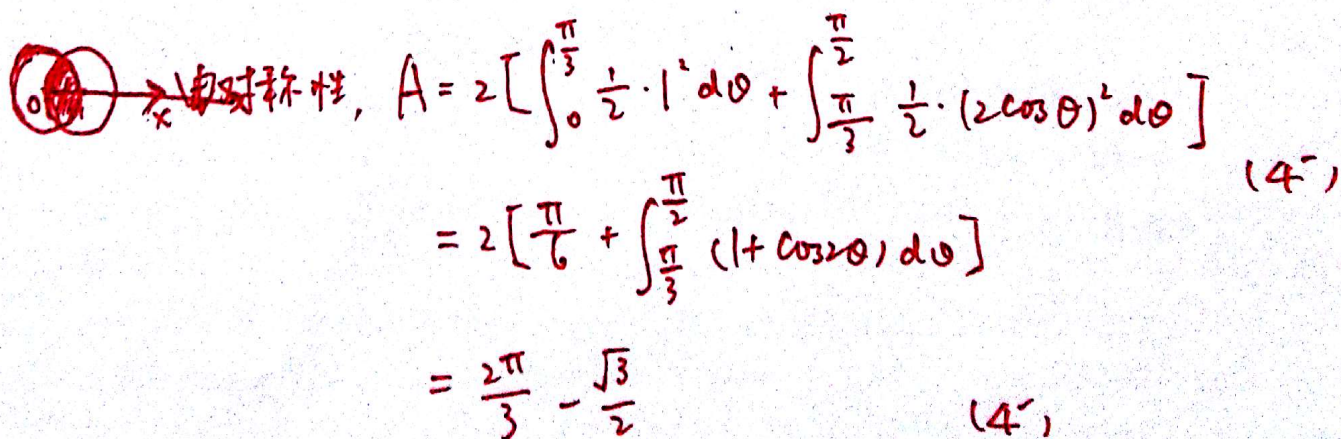 O x 由对称性, A = 2[∫₀^{π/3} 1/2 · 1² dθ + ∫_{π/3}^{π/2} 1/2 · (2cosθ)² dθ]
(4')
= 2[π/6 + ∫_{π/3}^{π/2} (1+cos2θ) dθ]
= 2π/3 - √3/2 (4')